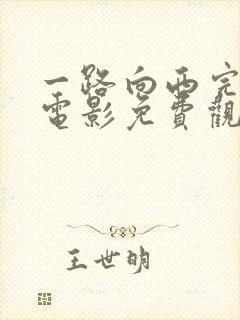 一路向西完
電影免費觀
王世明